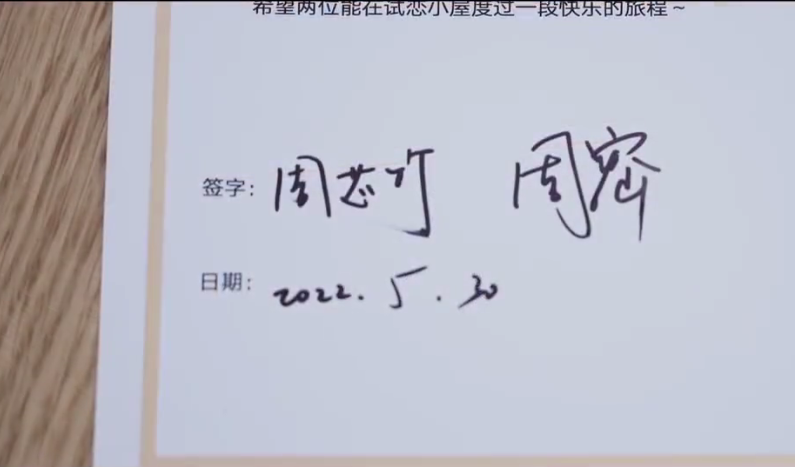 希望两位能在试恋小屋度过一段快乐的旅程~
签字: 周芯竹 周密
日期: 2022.5.30